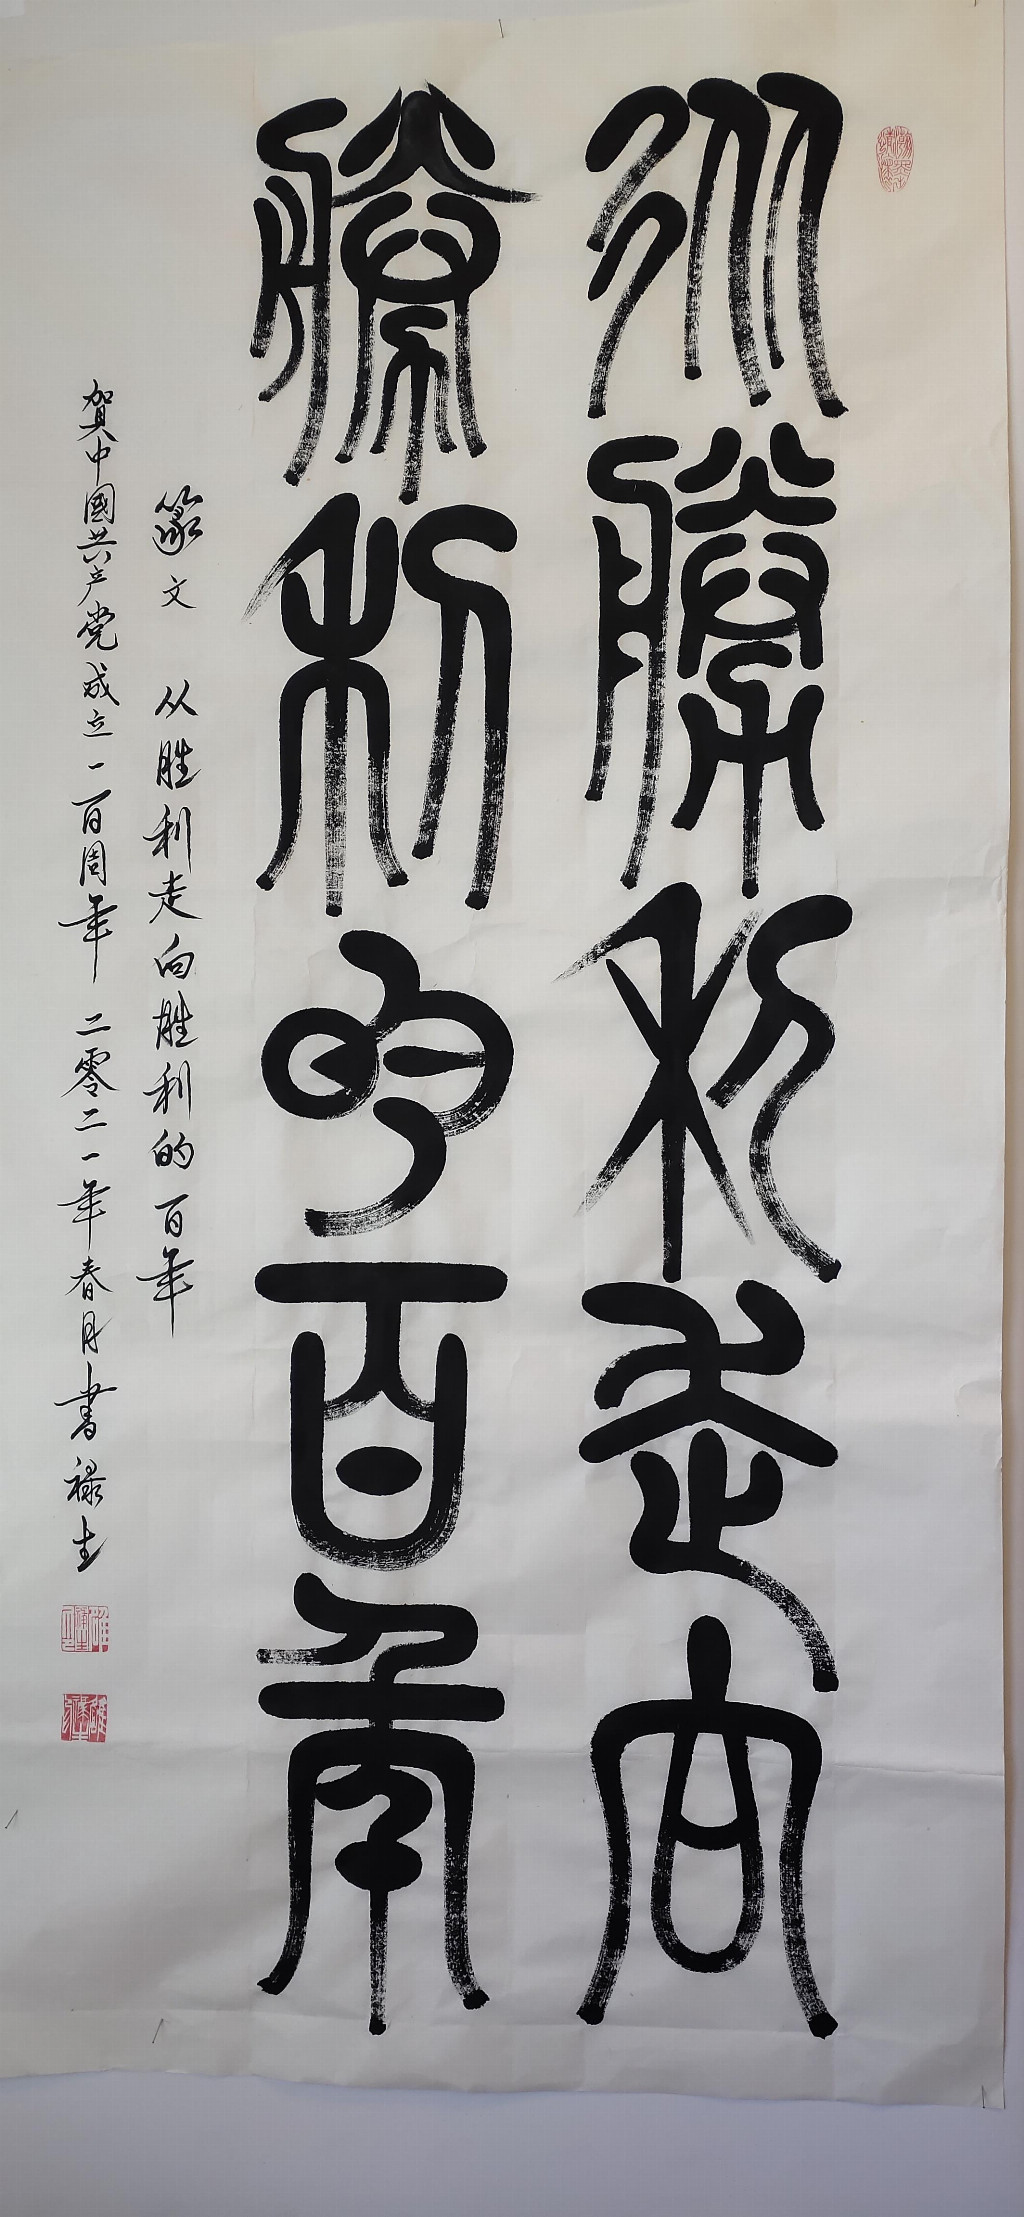 从勝利走向
勝利的百年
篆文 从胜利走向胜利的百年
贺中國共产党成立一百周年 二零二一年春月書 禄生